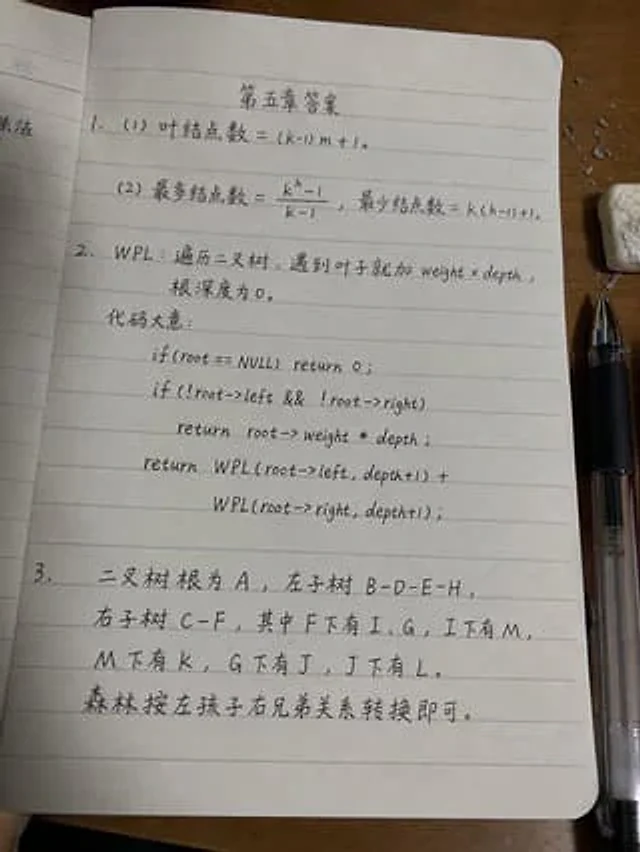 第五章答案
1. (1) 叶结点数 = (k-1)m+1。
(2) 最多结点数 = \frac{k^h-1}{k-1}, 最少结点数 = k(h-1)+1。
2. WPL: 遍历二叉树, 遇到叶子就加 weight × depth,
根深度为0。
代码大意:
if(root == NULL) return 0;
if (!root->left && !root->right)
return root->weight * depth;
return WPL(root->left, depth+1) +
WPL(root->right, depth+1);
3. 二叉树根为 A, 左子树 B-D-E-H,
右子树 C-F, 其中 F下有 I、G, I下有 M,
M下有 K, G下有 J, J下有 L。
森林按左孩子右兄弟关系转换即可。